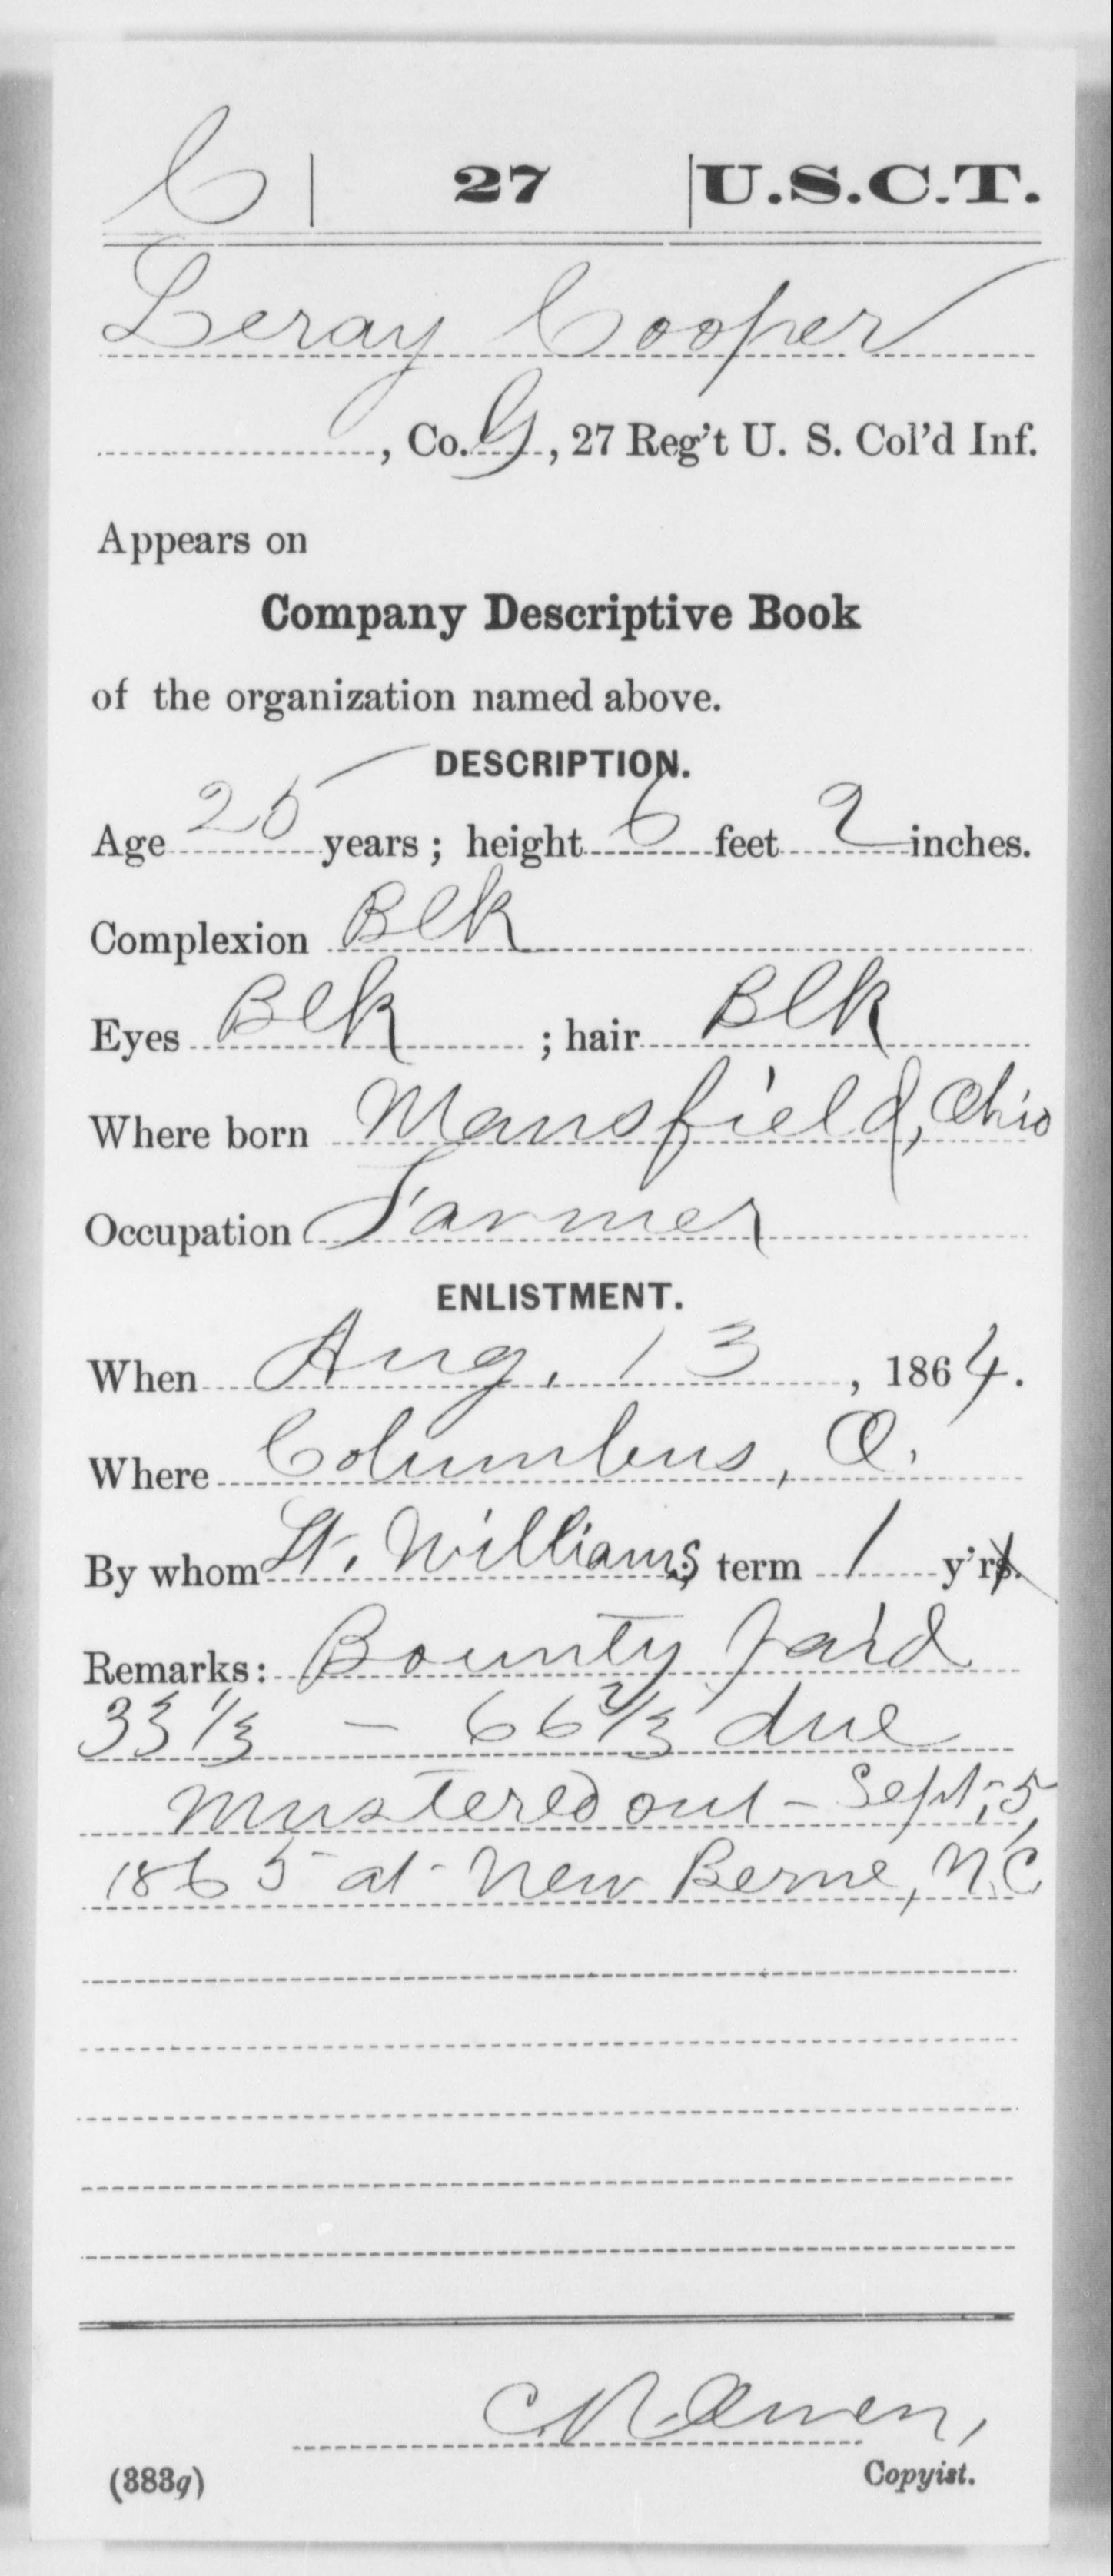 C | 27 | U.S.C.T.
Leray Cooper
, Co. G, 27 Reg't U. S. Col'd Inf.
Appears on
Company Descriptive Book
of the organization named above.
DESCRIPTION.
Age 25 years; height 6 feet 2 inches.
Complexion Blk
Eyes Blk ; hair Blk
Where born Mansfield, Ohio
Occupation Farmer
ENLISTMENT.
When Aug. 13, 1864.
Where Columbus, O.
By whom Lt. Williams; term 1 y'r
Remarks: Bounty paid
33 1/3 – 66 2/3 due
Mustered out – Sept; 5,
1865 at New Berne, N.C
Copyist.
(383g)